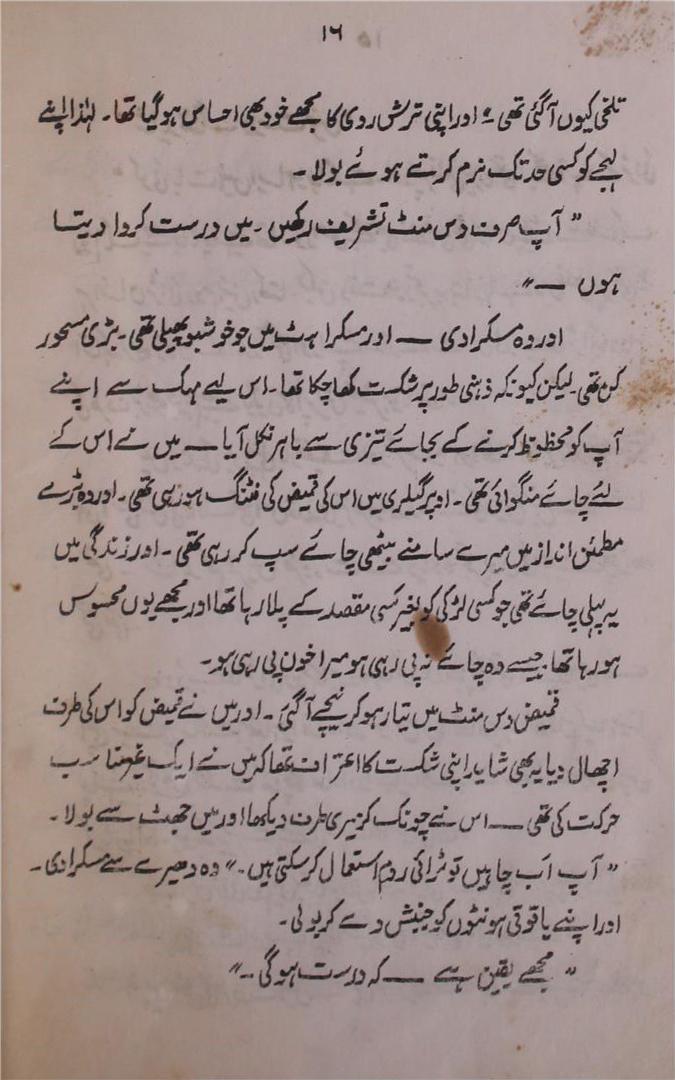 ۱۶
تلخی کیوں آگئی تھی۔ اور اپنی ترش روی کا مجھے خود بھی احساس ہو گیا تھا۔ لہٰذا اپنے
لہجے کو کسی حد تک نرم کرتے ہوئے بولا۔
”آپ صرف دس منٹ تشریف رکھیں۔ میں درست کروا دیتا
ہوں —“
اور وہ مسکرا دی — اور مسکراہٹ میں جو خوشبو پھیلی تھی۔ بڑی مسحور
کن تھی۔ لیکن کیونکہ ذہنی طور پر شکست کھا چکا تھا۔ اس لیے مہک سے اپنے
آپ کو محظوظ کرنے کے بجائے تیزی سے باہر نکل آیا — میں نے اس کے
لئے چائے منگوائی تھی۔ اوپر گیلری میں اس کی قمیض کی فٹنگ ہو رہی تھی۔ اور وہ بڑے
مطمئن انداز میں میرے سامنے بیٹھی چائے سپ کر رہی تھی۔ اور زندگی میں
یہ پہلی چائے تھی جو کسی لڑکی کو بغیر کسی مقصد کے پلا رہا تھا اور مجھے یوں محسوس
ہو رہا تھا۔ جیسے وہ چائے نہ پی رہی ہو میرا خون پی رہی ہو۔
قمیض دس منٹ میں تیار ہو کر نیچے آ گئی۔ اور میں نے قمیض کو اس کی طرف
اچھال دیا یہ بھی شاید اپنی شکست کا اعتراف تھا کہ میں نے ایک غیر مناسب
حرکت کی تھی — اس نے چونک کر میری طرف دیکھا اور میں جھٹ سے بولا۔
”آپ اب چاہیں تو ٹرائی روم استعمال کر سکتی ہیں۔“ وہ دھیرے سے مسکرا دی۔
اور اپنے یاقوتی ہونٹوں کو جنبش دے کر بولی۔
”مجھے یقین ہے — کہ درست ہو گی ۔۔“